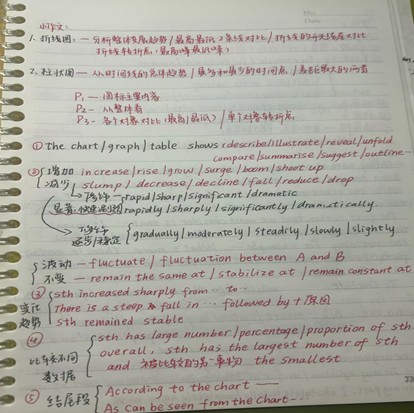 小作文:
1. 折线图: — 分析整体发展趋势/最高最低/多线对比/折线的开头结尾对比
折线转折点(最高峰最低峰)
2. 柱状图 — 从时间线的总体趋势/最多和最少的时间点/差距最大的两者
P1 — 图标主要内容
P2 — 从整体看
P3 — 各个对象对比(最高/最低)/单个对象转折点
① The chart/graph/table shows (describe/illustrate/reveal/unfold
compare/summarise/suggest/outline
② 增加 increase/rise/grow/surge/boom/shoot up
减少 slump/decrease/decline/fall/reduce/drop
rapid/sharp/significant/dramatic
显著 快速 rapidly/sharply/significantly/dramatically
逐步/稳定 gradually/moderately/steadily/slowly/slightly
波动 — fluctuate/fluctuation between A and B
不变 — remain the same at/stabilize at/remain constant at
③ sth increased sharply from … to …
变化 There is a steep & fall in … followed by + 原因
趋势 sth remained stable
④ sth has large number/percentage/proportion of sth
比较不同 overall, sth has the largest number of sth
数据 and 被比较的另一事物 the smallest
⑤ 结尾段 According to the chart —
As can be seen from the chart —